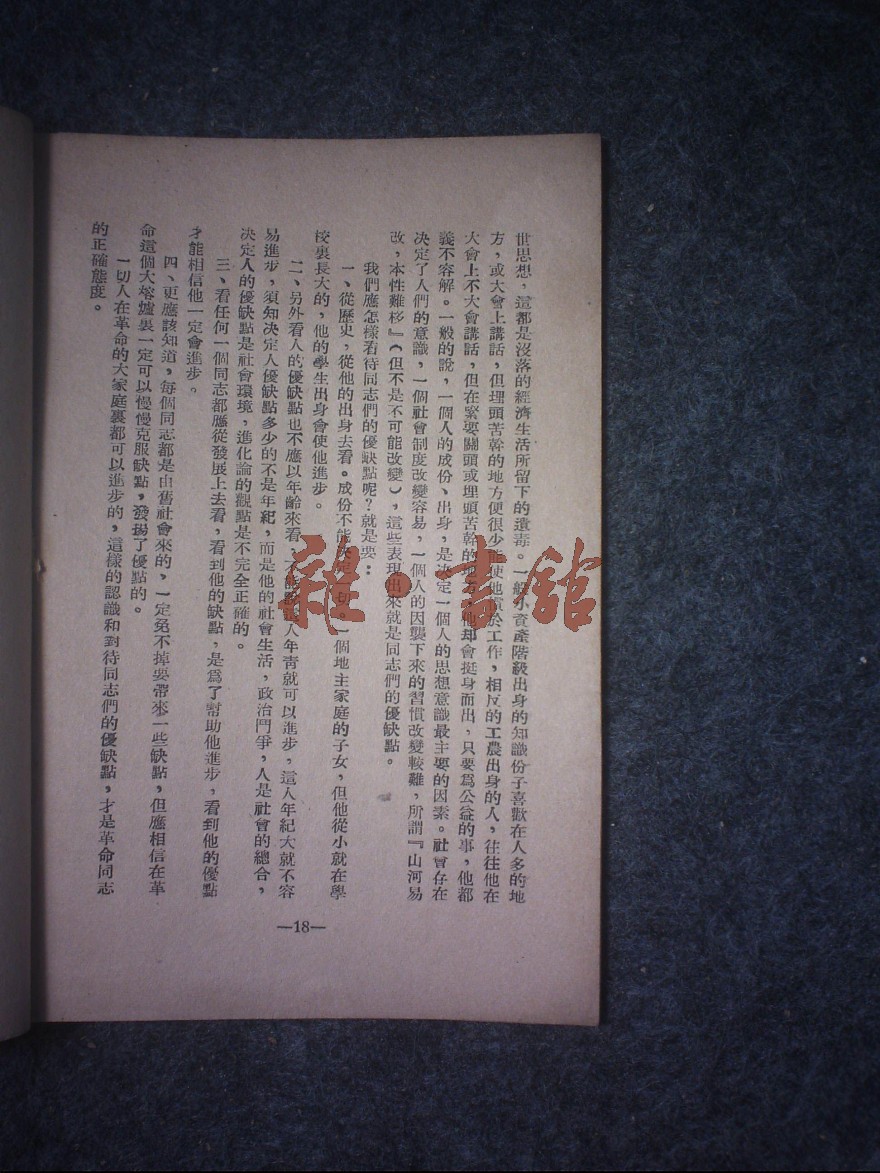 世思想，這都是沒落的經濟生活所留下的遺毒。一般小資產階級出身的知識份子喜歡在人多的地
方，或大會上講話，但埋頭苦幹的地方便很少能使他 於工作，相反的工農出身的人，往往他在
大會上不大會講話，但在緊要關頭或埋頭苦幹的地方，他却會挺身而出，只要爲公益的事，他都
義不容辭。一般的說，一個人的成份、出身，是決定一個人的思想意識最主要的因素。社會存在
決定了人們的意識，一個社會制度改變容易，一個人的因襲下來的習慣改變較難，所謂『山河易
改，本性難移』（但不是不可能改變），這些表現出來就是同志們的優缺點。
我們應怎樣看待同志們的優缺點呢？就是要：
一、從歷史，從他的出身去看。成份不能決定一切。一個地主家庭的子女，但他從小就在學
校裏長大的，他的學生出身會使他進步。
二、另外看人的優缺點也不應以年齡來看、不能 人年青就可以進步，這人年紀大就不容
易進步，須知決定人優缺點多少的不是年紀，而是他的社會生活，政治鬥爭，人是社會的總合，
決定人的優缺點是社會環境，進化論的觀點是不完全正確的。
三、看任何一個同志都應從發展上去看，看到他的缺點，是爲了幫助他進步，看到他的優點
才能相信他一定會進步。
四、更應該知道，每個同志都是由舊社會來的，一定免不掉要帶來一些缺點，但應相信在革
命這個大熔爐裏一定可以慢慢克服缺點，發揚了優點的。
一切人在革命的大家庭裏都可以進步的，這樣的認識和對待同志們的優缺點，才是革命同志
的正確態度。
—18—
雜·書館